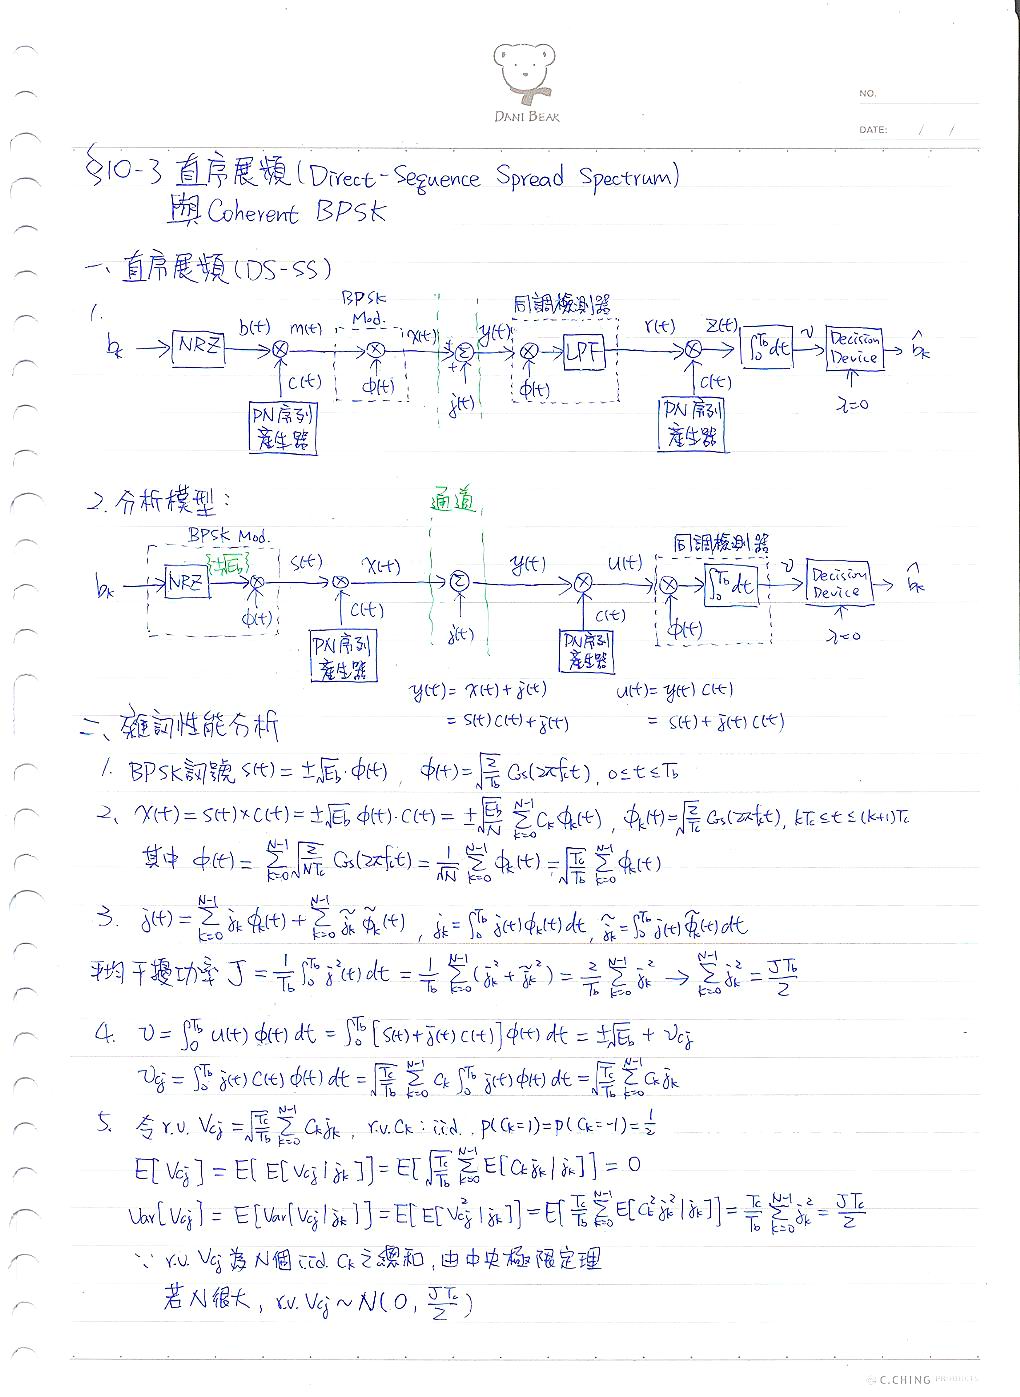 DANI BEAR
NO.
DATE: / /
§10-3 直序展頻(Direct-Sequence Spread Spectrum)
與Coherent BPSK
一、直序展頻(DS-SS)
1.
BPSK Mod.
同調檢測器
b_k NRZ b(t) m(t) x(t) Σ y(t) LPF r(t) z(t) ∫_0^{T_b} dt v Decision Device b̂_k
c(t) φ(t) j(t) φ(t) c(t) λ=0
PN序列產生器 PN序列產生器
2. 分析模型:
通道
BPSK Mod.
同調檢測器
b_k NRZ {±√E_b} s(t) x(t) Σ y(t) u(t) ∫_0^{T_b} dt v Decision Device b̂_k
φ(t) c(t) j(t) c(t) φ(t) λ=0
PN序列產生器 PN序列產生器
y(t) = x(t) + j(t) u(t) = y(t) c(t)
= s(t) c(t) + j(t) = s(t) + j(t) c(t)
二、雜訊性能分析
1. BPSK訊號 s(t) = ±√E_b · φ(t), φ(t) = √(2/T_b) Cos(2πf_c t), 0≤t≤T_b
2、x(t) = s(t)×c(t) = ±√E_b φ(t)·c(t) = ±√(E_b/N) Σ_{k=0}^{N-1} C_k φ_k(t), φ_k(t) = √(2/T_c) Cos(2πf_c t), kT_c ≤ t ≤ (k+1)T_c
其中 φ(t) = Σ_{k=0}^{N-1} √(2/(NT_c)) Cos(2πf_c t) = 1/√N Σ_{k=0}^{N-1} φ_k(t) = √(T_c/T_b) Σ_{k=0}^{N-1} φ_k(t)
3. j(t) = Σ_{k=0}^{N-1} j_k φ_k(t) + Σ_{k=0}^{N-1} j̃_k φ̃_k(t), j_k = ∫_0^{T_b} j(t) φ_k(t) dt, j̃_k = ∫_0^{T_b} j(t) φ̃_k(t) dt
平均干擾功率 J = 1/T_b ∫_0^{T_b} j²(t) dt = 1/T_b Σ_{k=0}^{N-1} (j_k² + j̃_k²) = 2/T_b Σ_{k=0}^{N-1} j_k² → Σ_{k=0}^{N-1} j_k² = JT_b/2
4. v = ∫_0^{T_b} u(t) φ(t) dt = ∫_0^{T_b} [s(t) + j(t) c(t)] φ(t) dt = ±√E_b + v_cj
v_cj = ∫_0^{T_b} j(t) c(t) φ(t) dt = √(T_c/T_b) Σ_{k=0}^{N-1} C_k ∫_0^{T_b} j(t) φ(t) dt = √(T_c/T_b) Σ_{k=0}^{N-1} C_k j_k
5. 令 r.v. V_cj = √(T_c/T_b) Σ_{k=0}^{N-1} C_k j_k, r.v. C_k : i.i.d. P(C_k=1) = P(C_k=-1) = 1/2
E[V_cj] = E[E[V_cj|j_k]] = E[√(T_c/T_b) Σ_{k=0}^{N-1} E[C_k j_k|j_k]] = 0
Var[V_cj] = E[Var[V_cj|j_k]] = E[E[V_cj²|j_k]] = E[T_c/T_b Σ_{k=0}^{N-1} E[C_k² j_k²|j_k]] = T_c/T_b Σ_{k=0}^{N-1} j_k² = JT_c/2
∵ r.v. V_cj 為 N個 i.i.d. C_k 之總和, 由中央極限定理
若 N 很大, r.v. V_cj ~ N(0, JT_c/2)
C.CHING PRODUCTS